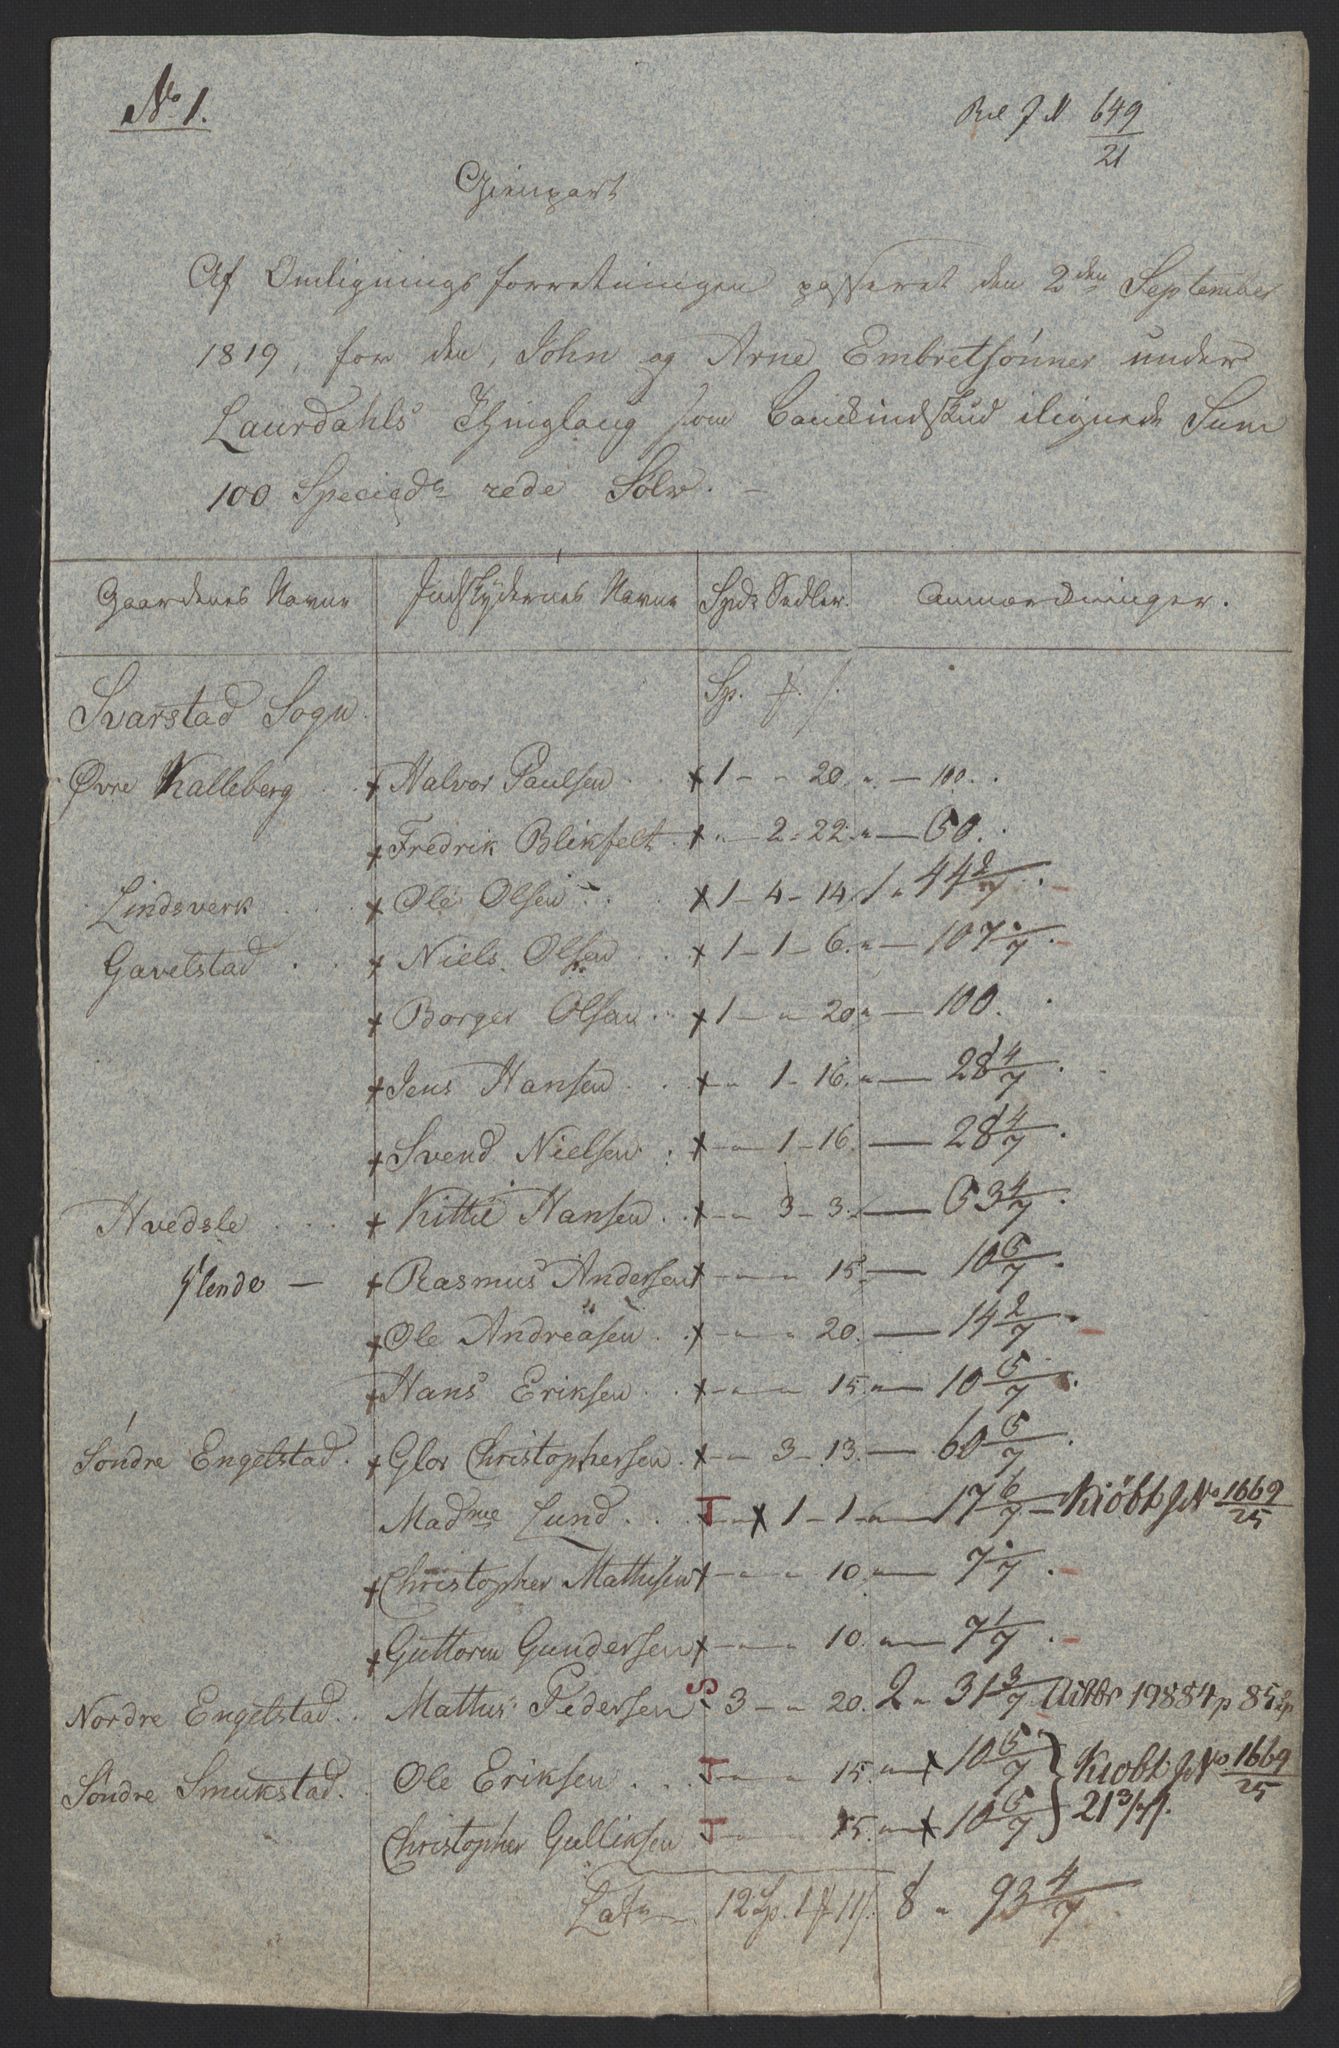 No 1.
649/21
Gienpart
Af Omligningsforretningen passeret den 2den September
1819, for den, John og Arne Embretsønner under
Laurdahls Thinglaug som Bankindskud ilignede Sum
100 Specied. rede Sølv. –
Gaardenes Navne Indskydernes Navne Spd. Sedler. Anmærkninger.
Svarstad Sogn.
Øvre Kalleberg . . Halvor Paulsen . . 1 – " 20. " – 100.
Fredrik Blikfelt. " – 2 - 22. " – 50.
Lindsverk . . . Ole Olsen . . 1 – 4 – 14. 1 " 44 2/7.
Gavelstad . . Niels Olsen . . 1 – 1 – 6. " – 107 1/7.
Borger Olsen . . 1 – " 20. " – 100.
Jens Hansen . . " 1 – 16. " – 28 4/7.
Svend Nielsen . – " – 1 – 16. – 28 4/7.
Hvedsle . . . Kittil Hansen . . – " 3 – 3. – 53 4/7.
Ylende – Rasmus Andersen – " – " 15. – 10 5/7.
Ole Andreasen . – " – " 20. – 14 2/7.
Hans Eriksen . . – " – " 15. " – 10 5/7.
Søndre Engelstad. Glor Christophersen . – " 3 – 13. – 60 5/7.
Madme Lund . . . J – " x 1 – 1 – " – 17 6/7 – Kiöbt J No 1669/25
Christopher Mathisen – " – " 10. " – 7 1/7.
Guttorm Gundersen – " – " 10. " – 7 1/7.
Nordre Engelstad. . Mathis Pedersen S – 3 – " 20. 2 " 31 3/7 19884 p 85
Søndre Smukstad. Ole Eriksen . . . J – " – " 15. " x 10 5/7 Kiöbt J No 1669/25
Christopher Gulliksen J – " – " 15. " x 10 5/7 21 3/7 ß.
Latr 12 Sp. 1 ƒ 11 ß. 8 " 93 4/7